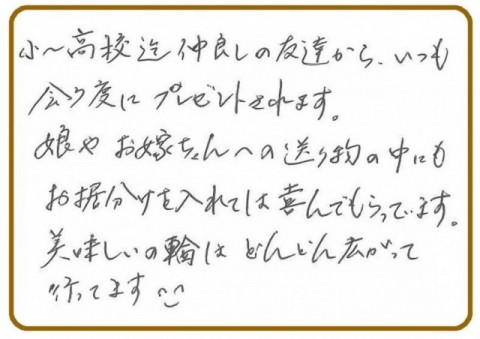 小〜高校迄仲良しの友達から、いつも
会う度に プレゼントされます。
娘や お嫁ちゃんへの送り物の中にも
お据分けを入れては喜んでもらってます。
美味しいの輪は どんどん広がって
行ってます